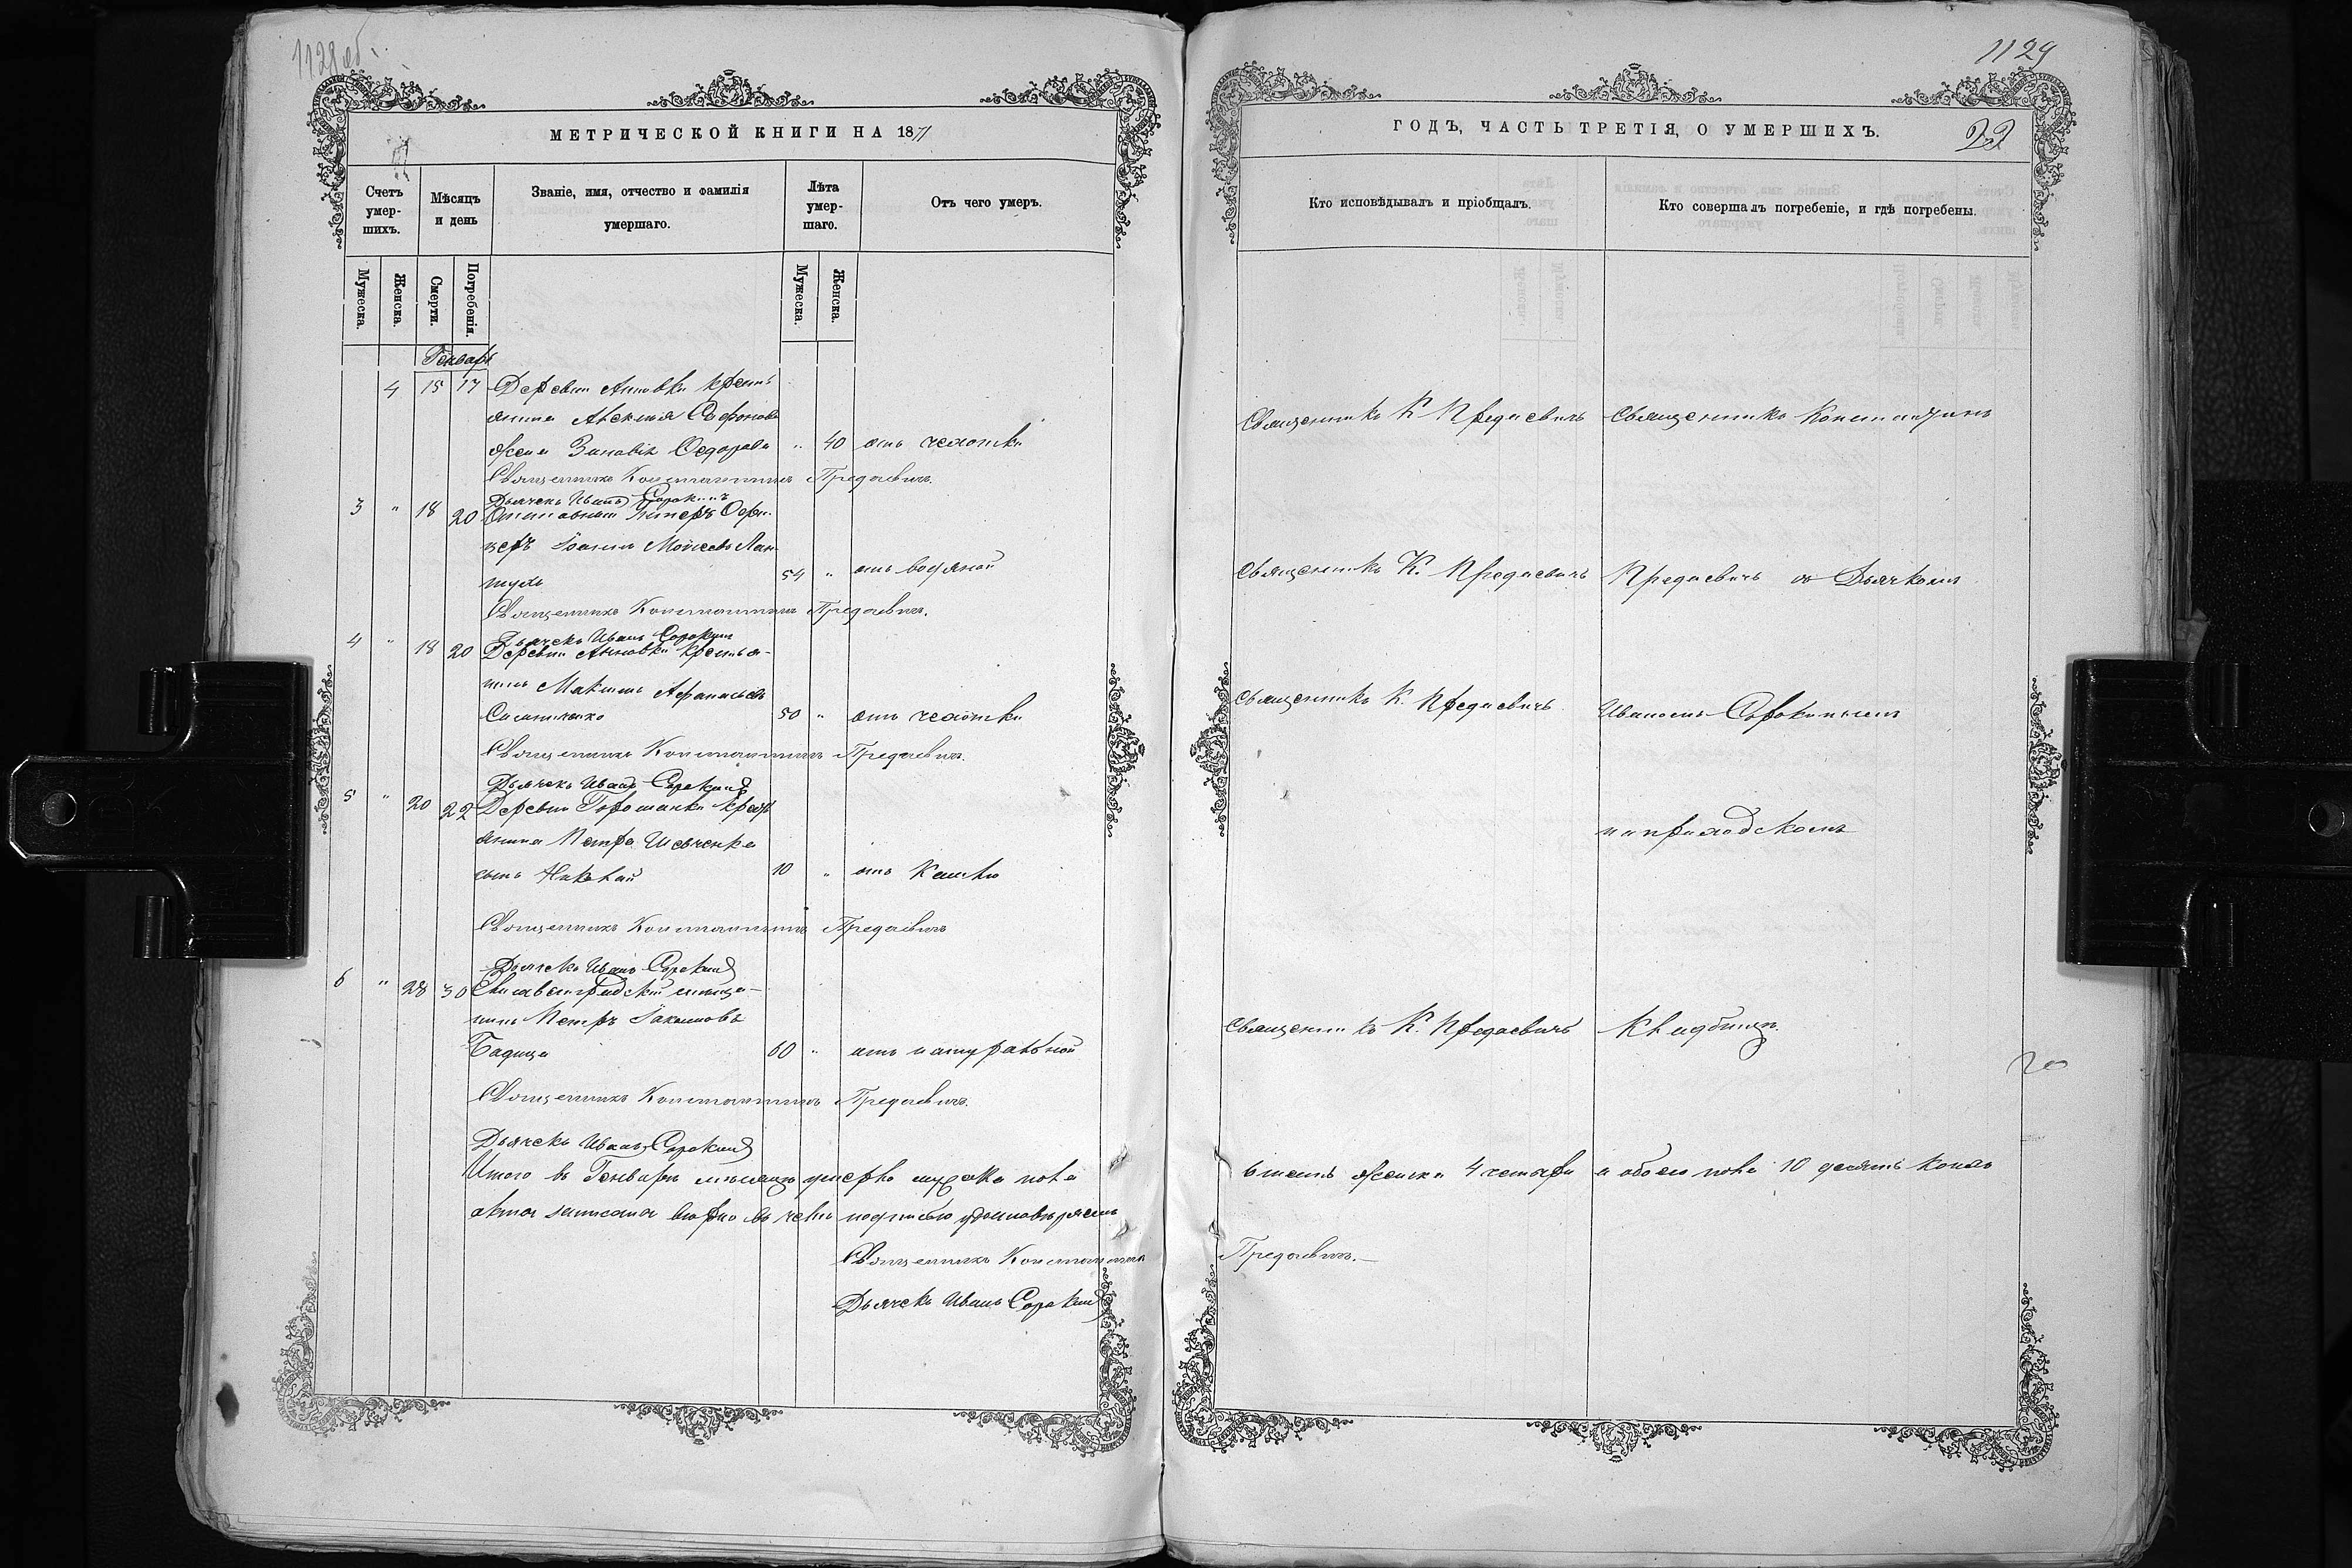 1128 об.
МЕТРИЧЕСКОЙ КНИГИ НА 1871
Счетъ умер-шихъ.
Мѣсяцъ и день
Званіе, имя, отчество и фамилія умершаго.
Лѣта умер-шаго.
Отъ чего умеръ.
Мужеска.
Женска.
Смерти.
Погребенія.
Мужеска.
Женска.
Генварь
4 15 17 Деревни Анновки крестъ
янина
жена Зиновія Ѳедорова " 40 отъ чахотки
Священникъ Константинъ Предаевичъ.
Дьячекъ Иванъ Сорокинъ
3 " 18 20 Отставной Унтеръ Офи-
церъ Іоаннъ Моисеевъ Лан
тухъ 54 " отъ водяной
Священникъ Константинъ Предаевичъ.
Дьячекъ Иванъ Сорокинъ
4 " 18 20 Деревни Анновки крестья-
нинъ Максимъ Афанасьевъ
50 " отъ чахотки
Священникъ Константинъ Предаевичъ.
Дьячекъ Иванъ Сорокинъ
5 " 20 22 Деревни крест
янина Петра Шевченка
сынъ 10 " отъ кашлю
Священникъ Константинъ Предаевичъ
Дьячекъ Иванъ Сорокинъ
6 " 28 30 Елисаветградскій мѣща-
нинъ Петръ Іакимовъ
Бадица 60 " отъ натуральной
Священникъ Константинъ Предаевичъ.
Дьячекъ Иванъ Сорокинъ
Итого въ Генварѣ мѣсяцѣ умерло мужска пола
акта записаны вѣрно въ чемъ подписью удостовѣряемъ
Священникъ Константинъ
Дьячекъ Иванъ Сорокинъ
1129
ГОДЪ, ЧАСТЬ ТРЕТІЯ, О УМЕРШИХЪ.
22
Кто исповѣдывалъ и пріобщалъ.
Кто совершалъ погребеніе, и гдѣ погребены.
Священникъ К Предаевичъ Священникъ Константинъ
Священникъ К. Предаевичъ Предаевичъ съ Дьячкомъ
Священникъ К. Предаевичъ Иваномъ Сорокинымъ
на приходскомъ
Священникъ К. Предаевичъ Кладбищѣ.
6 шесть женска 4 четыри а обоего пола 10 десять коихъ
Предаевичъ.—